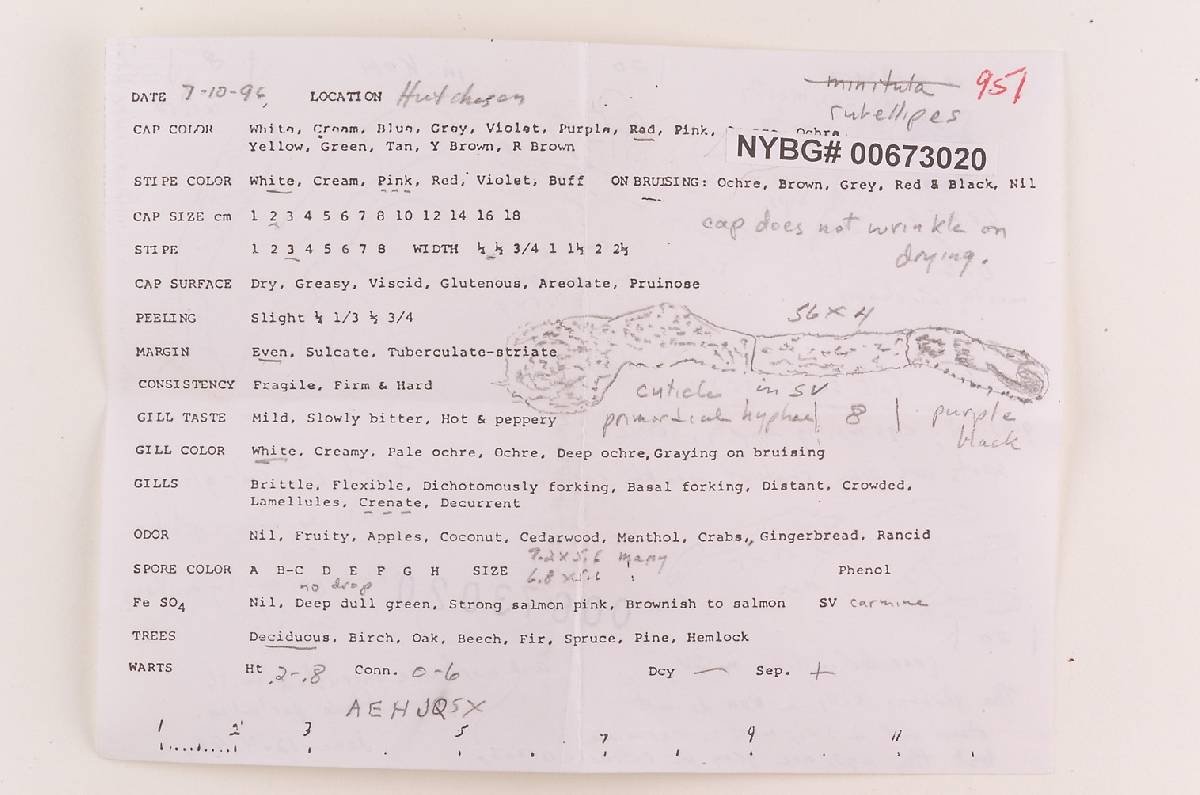 minitula 951
DATE 7-10-96 LOCATION Hutcheson rubellipes
CAP COLOR White, Cream, Blue, Grey, Violet, Purple, Red, Pink, Ochre
Yellow, Green, Tan, Y Brown, R Brown
NYBG# 00673020
STIPE COLOR White, Cream, Pink, Red, Violet, Buff ON BRUISING: Ochre, Brown, Grey, Red & Black, Nil
CAP SIZE cm 1 2 3 4 5 6 7 8 10 12 14 16 18
cap does not wrinkle on
STIPE 1 2 3 4 5 6 7 8 WIDTH ¼ ½ 3/4 1 1½ 2 2½
drying.
CAP SURFACE Dry, Greasy, Viscid, Glutenous, Areolate, Pruinose
PEELING Slight ¼ 1/3 ½ 3/4
56 x 4
MARGIN Even, Sulcate, Tuberculate-striate
CONSISTENCY Fragile, Firm & Hard
cuticle in SV
GILL TASTE Mild, Slowly bitter, Hot & peppery
primordial hyphae 8 purple
black
GILL COLOR White, Creamy, Pale ochre, Ochre, Deep ochre, Graying on bruising
GILLS Brittle, Flexible, Dichotomously forking, Basal forking, Distant, Crowded,
Lamellules, Crenate, Decurrent
ODOR Nil, Fruity, Apples, Coconut, Cedarwood, Menthol, Crabs,, Gingerbread, Rancid
7.2 x 5.6 many
SPORE COLOR A B-C D E F G H SIZE 6.8 x 5.6 Phenol
no drop
Fe SO4 Nil, Deep dull green, Strong salmon pink, Brownish to salmon SV carmine
TREES Deciduous, Birch, Oak, Beech, Fir, Spruce, Pine, Hemlock
WARTS Ht .2-.8 Conn. 0-6 Dcy — Sep. +
AEHJQSX
1 2 3 5 7 9 11